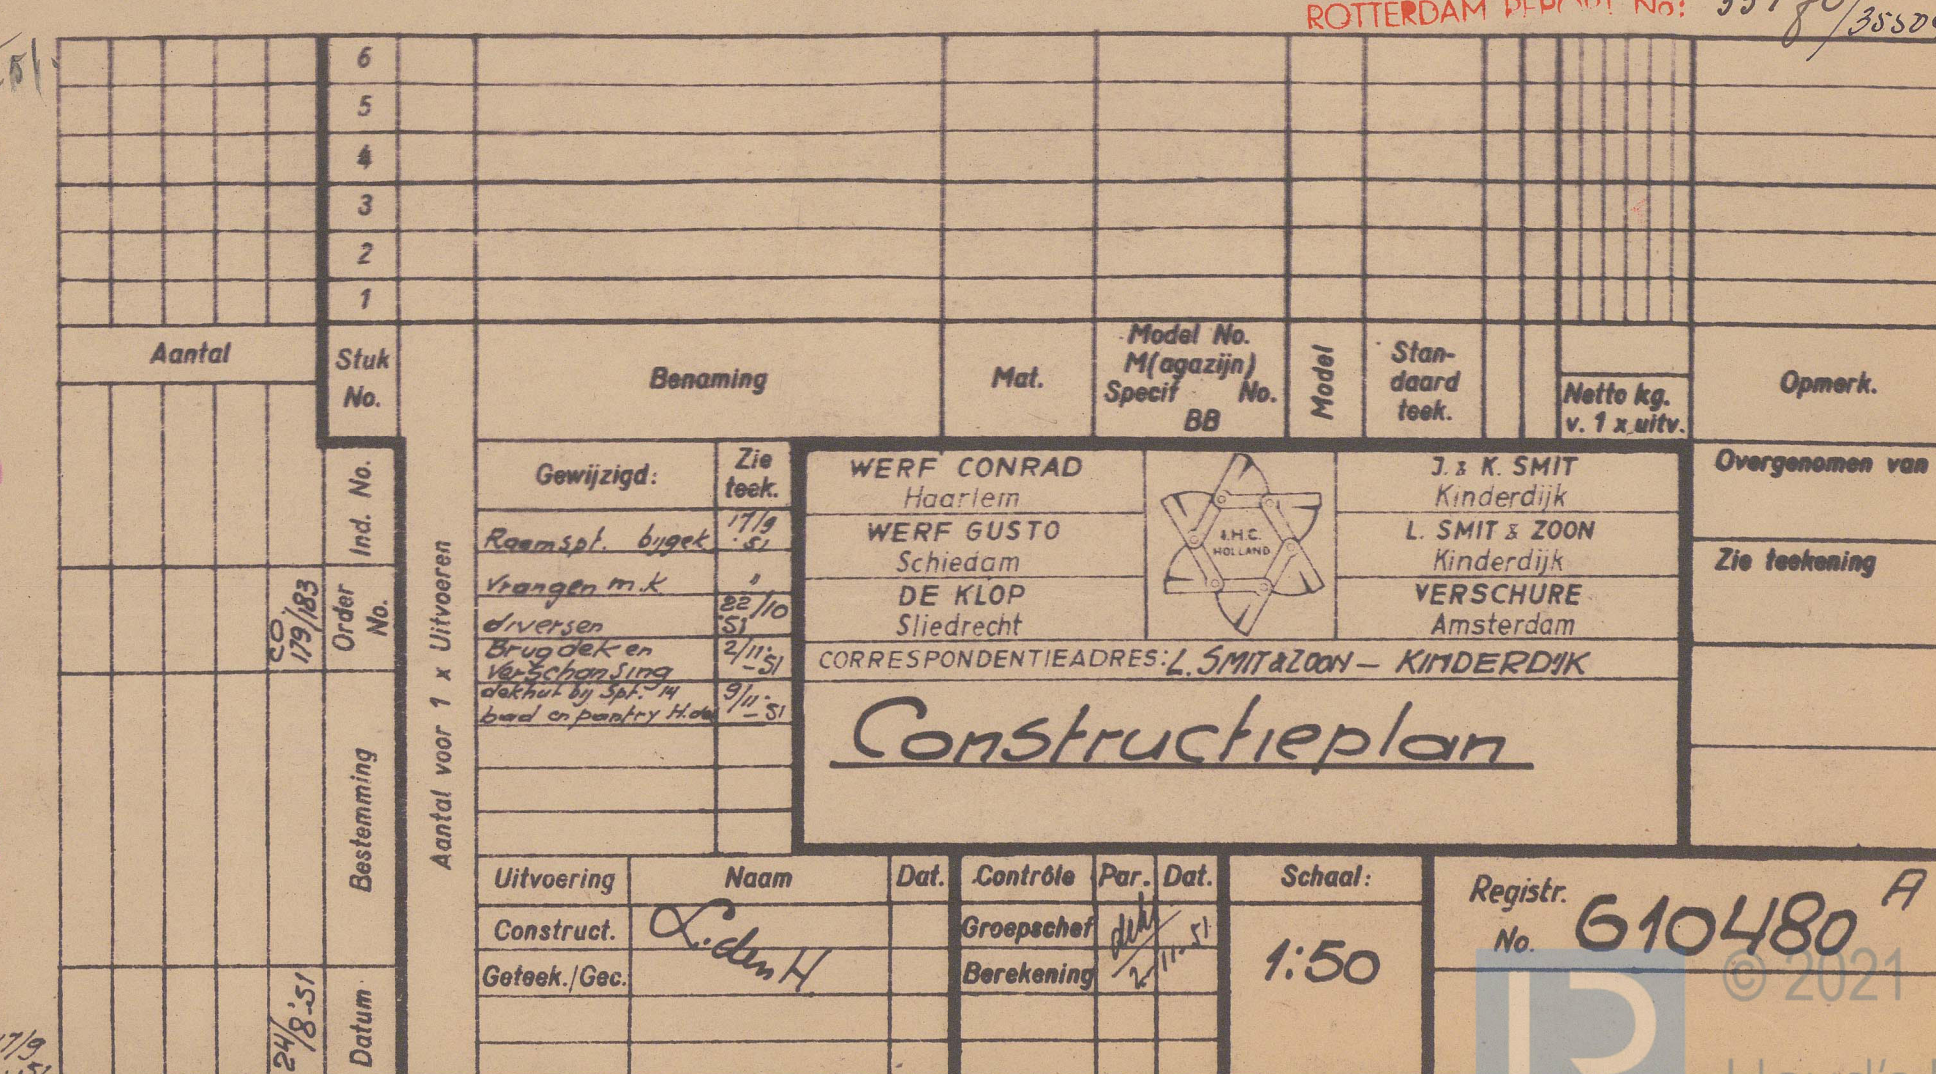 ROTTERDAM REPORT No:
6
5
4
3
2
1
Aantal
Stuk No.
Benaming
Mat.
Model No.
M(agazijn)
Specif No.
BB
Model
Stan-
daard
teek.
Netto kg.
v. 1 x uitv.
Opmerk.
Ind. No.
Order No.
CO 179/183
Bestemming
Datum
24/8-'51
Aantal voor 1 x Uitvoeren
Gewijzigd:
Zie teek.
Raamspt. bijgek 17/9 51
Vrangen m.k "
diversen 22/10 51
Brugdek en
verschansing 2/11-51
dekhut bij Spt. 14
bad en pantry H.dek 9/11-51
WERF CONRAD
Haarlem
WERF GUSTO
Schiedam
DE KLOP
Sliedrecht
I.H.C.
HOLLAND
J. & K. SMIT
Kinderdijk
L. SMIT & ZOON
Kinderdijk
VERSCHURE
Amsterdam
CORRESPONDENTIEADRES: L. SMIT & ZOON – KINDERDIJK
Constructieplan
Overgenomen van
Zie teekening
Uitvoering Naam Dat.
Construct. L. den H
Geteek./Gec.
Contrôle Par. Dat.
Groepschef
Berekening
2-11-51
Schaal:
1:50
Registr. No. 610480 A
17/9
51
© 2021